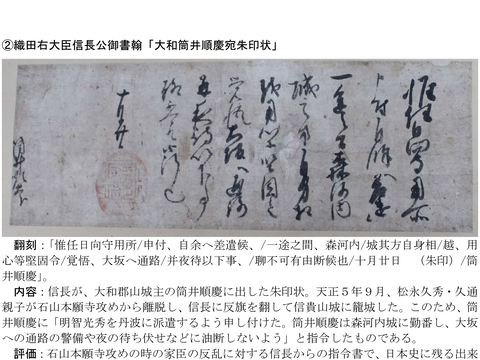 ②織田右大臣信長公御書翰「大和筒井順慶宛朱印状」
惟任日向守用所
申付、自余へ差遣候、
一途之間、森河内
城其方自身相
越、用心等堅固令
覚悟、大坂へ通路
并夜待以下事、
聊不可有由断候也
十月廿日
筒井順慶
翻刻:「惟任日向守用所/申付、自余へ差遣候、/一途之間、森河内/城其方自身相/越、用
心等堅固令/覚悟、大坂へ通路/并夜待以下事、/聊不可有由断候也/十月廿日 (朱印)/筒
井順慶」。
内容:信長が、大和郡山城主の筒井順慶に出した朱印状。天正5年9月、松永久秀・久通
親子が石山本願寺攻めから離脱し、信長に反旗を翻して信貴山城に籠城した。このため、筒
井順慶に「明智光秀を丹波に派遣するよう申し付けた。筒井順慶は森河内城に勤番し、大坂
への通路の警備や夜の待ち伏せなどに油断しないよう」と指令したものである。
評価:石山本願寺攻めの時の家臣の反乱に対する信長からの指令書で、日本史に残る出来